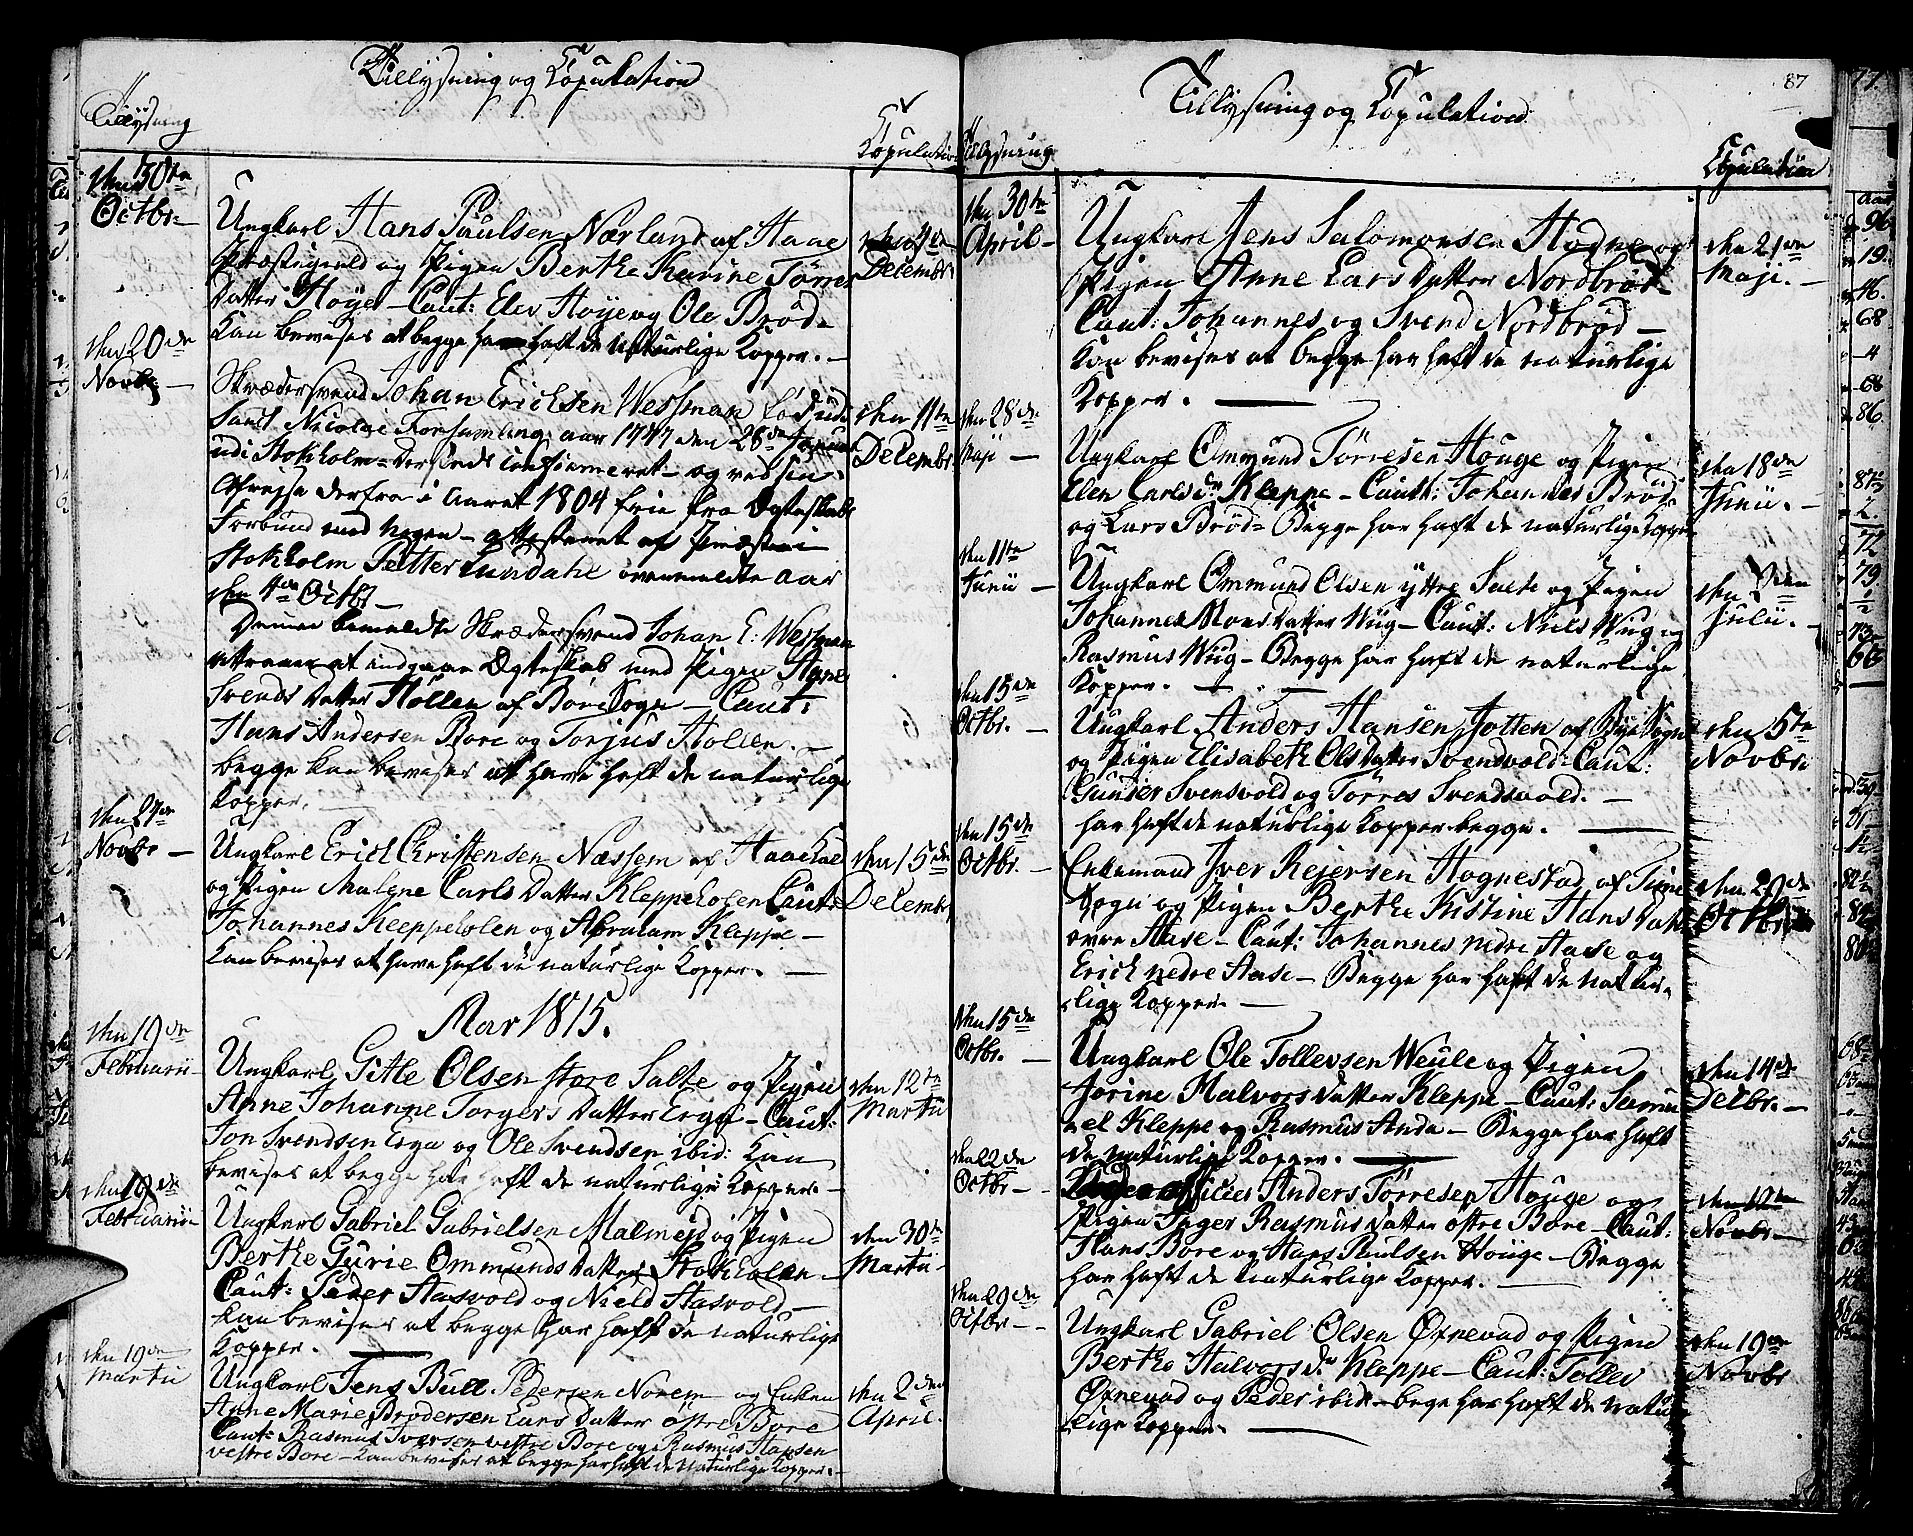 Tillysning og Copulation
Tillysning
Copulation
den 30te
Octbr.
Ungkarl Hans Paulsen Nærland af Haae
Præstegield og Pigen Berthe Karine Törres
Datter Höye - Caut: Elev Höye og Ole Bröd.
Kan bevises at begge har haft de naturlige Kopper. -
den 4de
Decembr
den 20de
Novbr. -
Skrædersvend Johan Erichsen Westman föd udi
Sanct Nicolai Forsamling aar 1747 den 28de
udi Stokholm - der sinds confirmeret - og ved sin
Afreise derfra i Aaret 1804 frie fra Ægteskabs
Forbund med nogen - attesteret af Præsten i
Stokholm Petter Lundahl ovenmeldte Aar
den 4de Octbr -
Denne bemeldte Skrædersvend Johan E: Westman
attraaer at indgaae Ægteskab med Pigen Ane
Svends Datter Hollen af Bore Sogn - Caut:
Hans Andersen Bore og Torjus Hollen. -
begge kan bevises at have haft de naturlige
Kopper. -
den 11te
Decembr
den 27de
Novbr -
Ungkarl Erich Christensen Næssem af Haae
og Pigen Malene Carls Datter Kleppeholen Caut:
Johannes Kleppeholen og Abraham Kleppe -
Kan bevises at have haft de naturlige Kopper. -
den 15de
Decembr
Aar 1815.
den 19de
Februarii -
Ungkarl Gitle Olsen store Salte og Pigen
Anne Johanne Torgers Datter Erga - Caut:
Jon Svendsen Erga og Ole Svendsen ibid: Kan
bevises at begge har haft de naturlige Kopper. -
den 12te
Martii
den 19de
Februarii -
Ungkarl Gabriel Gabrielsen Malmeid og Pigen
Berthe Gurie Ommunds Datter Stokholen -
Caut: Peder Aasvold og Nield Aasvold -
kan bevises at begge har haft de naturlige
Kopper. -
den 30te
Martii -
den 19de
Martii
Ungkarl Jens Bull Pedersen Norem og Enken
Anne Marie Brodersen Lars Datter östre Bore
Caut: Rasmus Iversen vestre Bore og Rasmus Hansen
vestre Bore - Kan bevises at begge har haft de naturlige Kopper. -
den 2den
April.
87
Tillysning og Copulation
Tillysning
Copulation
den 30te
April -
Ungkarl Jens Salomonsen Hodne og
Pigen Anne Lars Datter Nordbröd
Caut: Johannes og Svend Nordbröd -
Kan bevises at begge har haft de naturlige
Kopper. -
den 21de
Maji. -
den 28de
Maji -
Ungkarl Ommund Törresen Houge og Pigen
Elen Carls dr. Kleppe - Caut: Johannes Bröd
og Lars Bröd - Begge har haft de naturlige Kopper
den 18de
Junii. -
den 11te
Junii -
Ungkarl Ommund Olsen yttre Salte og Pigen
Johanne Mons Datter Wiig - Caut: Niels Wiig og
Rasmus Wiig - Begge har haft de naturlige
Kopper. -
den 2den
Julii. -
den 15de
Octbr. -
Ungkarl Anders Hansen Jotten af Bye Sogn
og Pigen Elisabeth Ols Datter Svensvold - Caut:
Gunder Svensvold og Torres Svendsvold. -
har haft de naturlige Kopper begge. -
den 5te
Novbr.
den 15de
Octbr. -
Enkemand Iver Reiersen Hognestad af Time
Sogn og Pigen Berthe Kistine Hans Datter
övre Aase - Caut: Johannes nedre Aase og
Erich nedre Aase - Begge har haft de natur-
lige Kopper. -
den 29de
Octbr.
den 15de
Octbr. -
Ungkarl Ole Tollevsen Weule og Pigen
Jorine Halvors Datter Kleppe - Caut: Samu
el Kleppe og Rasmus Anda - Begge har haft
de naturlige Kopper. -
den 14de
Decbr. -
den 22de
Octbr -
Anders Törresen Houge og
Pigen Inger Rasmus Datter östre Bore - Caut:
Hans Bore og Hans Paulsen Houge - Begge
har haft de naturlige Kopper. -
den 12te
Novbr -
den 29de
Octbr -
Ungkarl Gabriel Olsen Öxnevad og Pigen
Berthe Halvors dr. Kleppe - Caut: Tollev
Öxnevad og Peder ibid - bege har haft de natur
lige Kopper. -
den 19de
Novbr